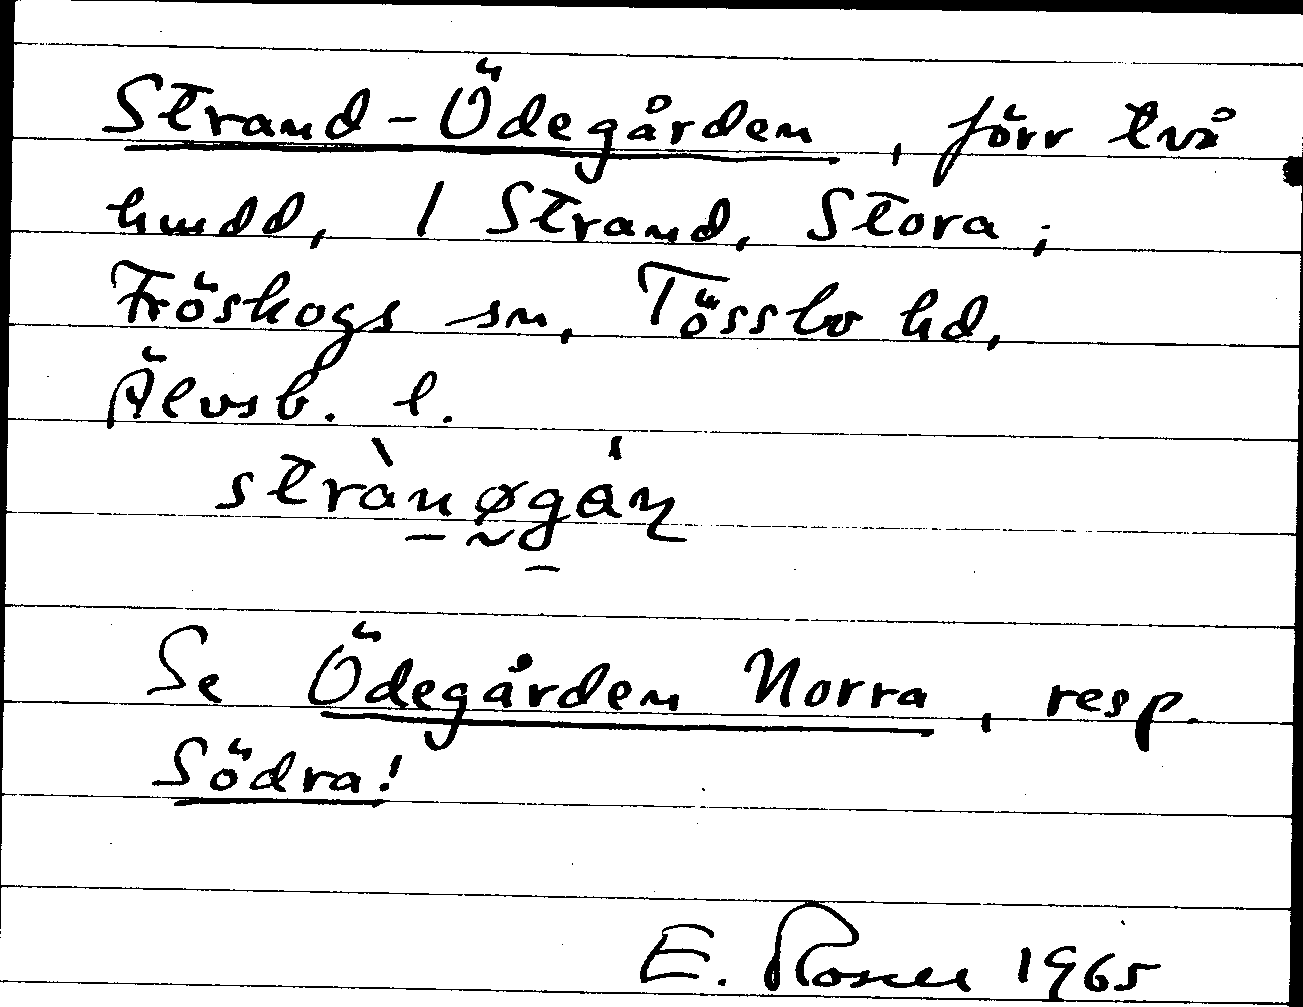 Strand-Ödegården, förr två
hmdd, 1 Strand, Stora;
Fröskogs sn, Tössbo hd,
Älvsb. l.
strànøgán
Se Ödegården Norra, resp.
Södra!
E. Rosell 1965